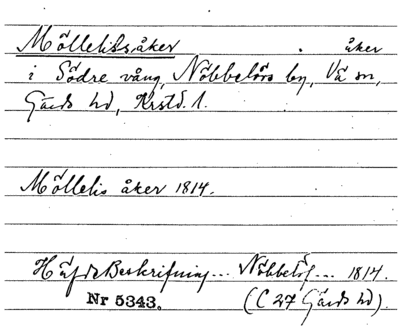 Möllelisåker . åker
i Södre vång, Nöbbelövs by, Vä sn,
Gärds hd, Krstd. l.
Möllelis åker 1814.
Häfde Beskrifning... Nöbbelöf... 1814.
Nr 5343. (C 27 Gärds hd).